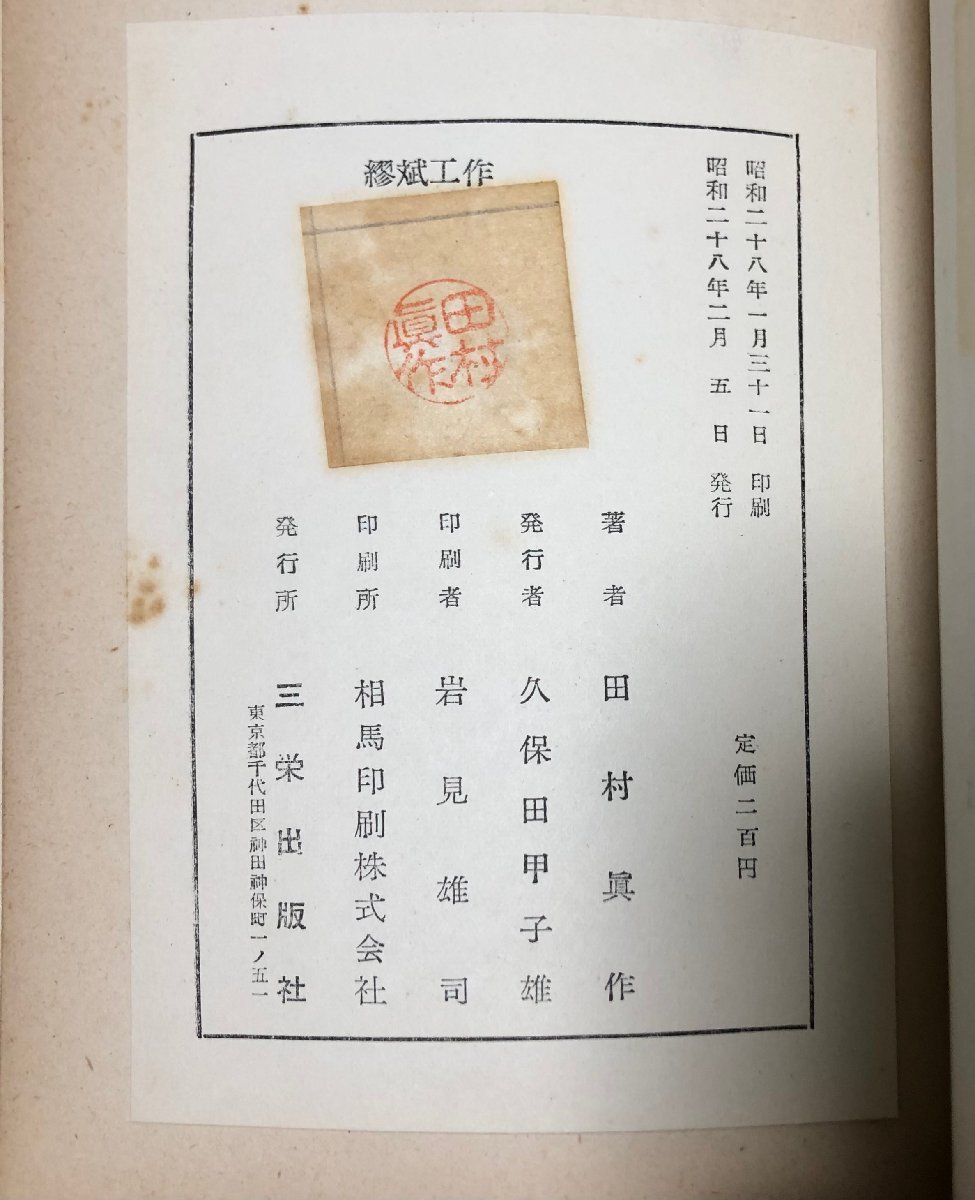 昭和二十八年一月三十一日 印刷
昭和二十八年二月 五 日 発行
定価二百円
繆斌工作
田村
眞作
著者 田村眞作
発行者 久保田甲子雄
印刷者 岩見雄司
印刷所 相馬印刷株式会社
発行所 三栄出版社
東京都千代田区神田神保町一ノ五一